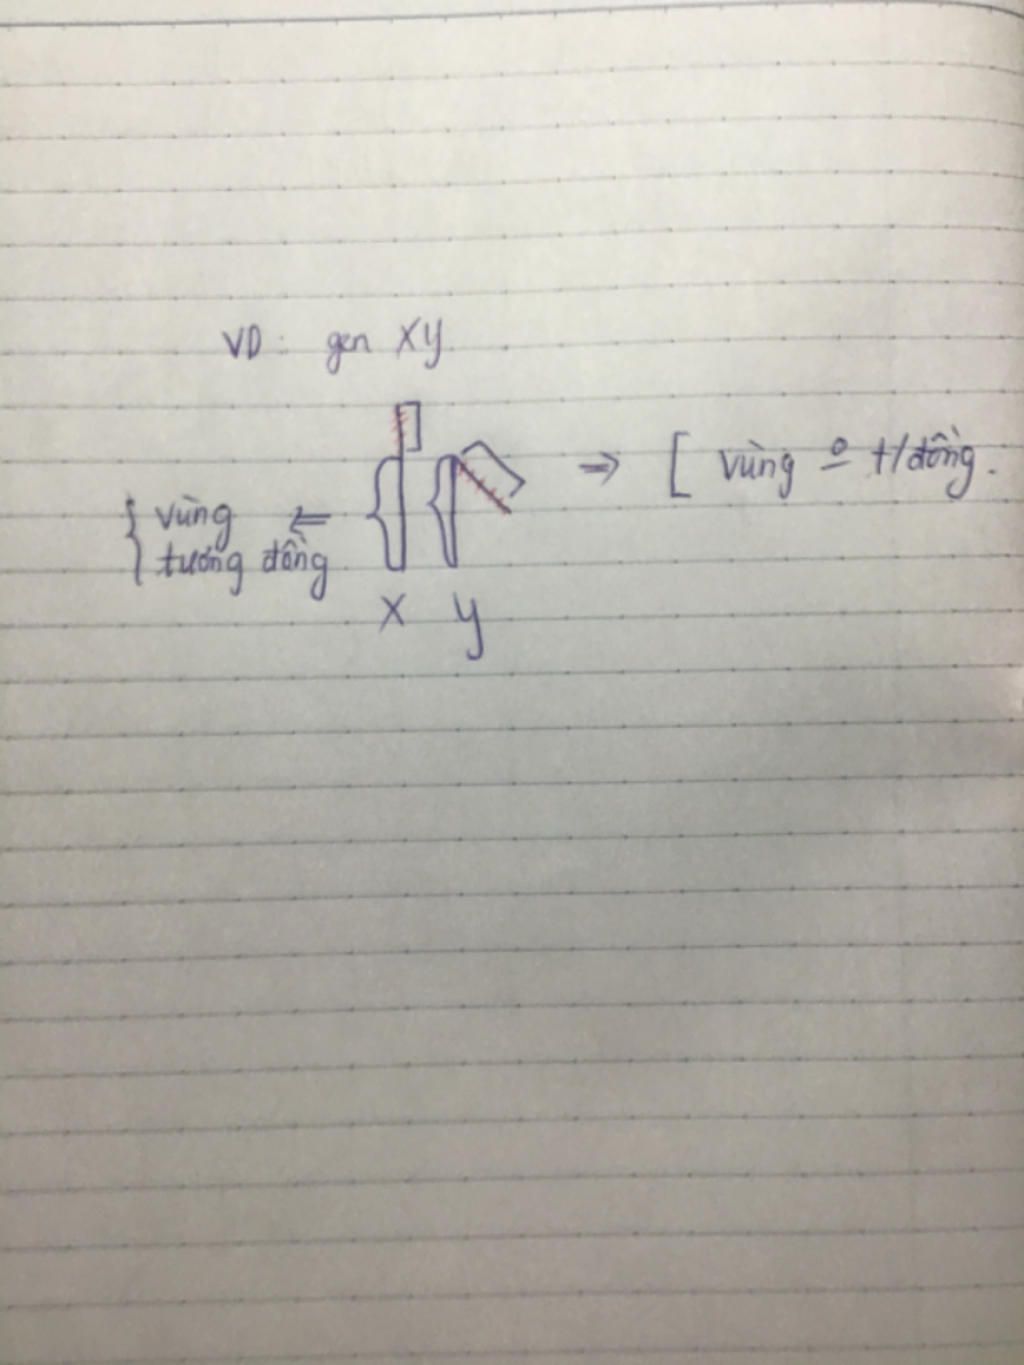 VD: gen XY
{ vùng ⇐
tương đồng
⇒ [ vùng º t/đồng.
X Y